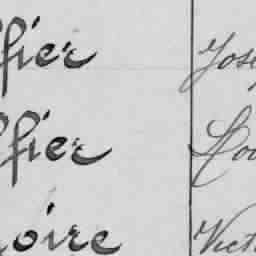 fier Jose
fier Lou
oire Vict